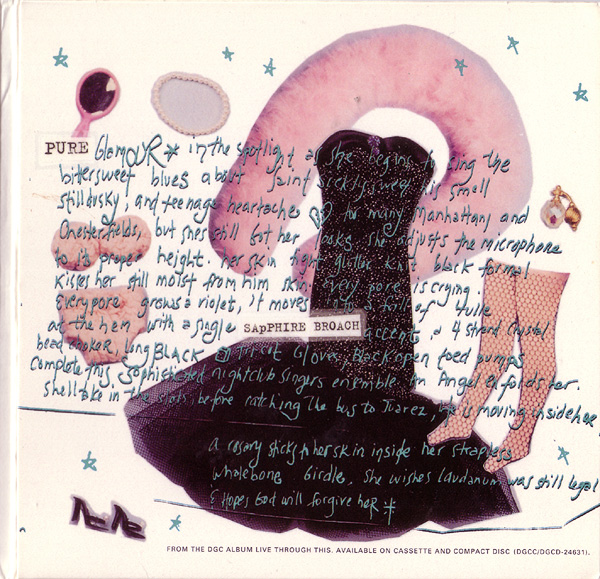 PURE GlamOUR* in the spotlight as she begins to sing the
bittersweet blues about faint sickly sweet is smell
still dusky, and teenage heartache too many Manhattans and
Chesterfields, but shes still got her looks she adjusts the microphone
to its proper height. her skin tight glitter knit black formal
Kisses her still moist from him skin every pore is crying.
Every pore grows a violet, it moves into a fall of tulle
at the hem with a single SApPHIRE BROACH accent. a 4 strand crystal
bead choker, long BLACK Gloves, Black open toed pumps
complete this sophisticated nightclub singers ensemble. An Angel
She'll take in the slots, before catching the bus to Juarez, is moving inside her,
a rosary sticks to her skin inside her strapless
whalebone girdle. She wishes laudanum was still legal
& Hopes God will forgive heR *
FROM THE DGC ALBUM LIVE THROUGH THIS. AVAILABLE ON CASSETTE AND COMPACT DISC (DGCC/DGCD-24631).